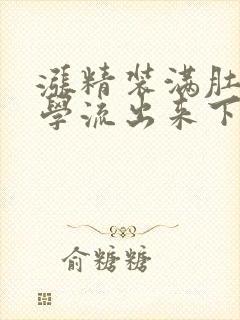 漲精装满肚
學流出来下
俞糖糖